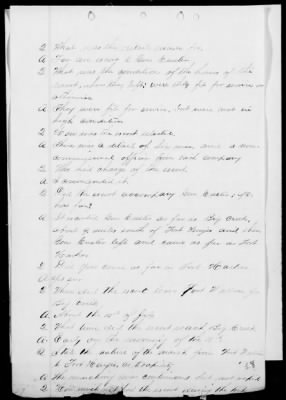 Q What was the detail made for
A For an escort to Gen Custer,
Q What was the condition of the horses of the
escort, when they left; were they fit for service or
otherwise
A They were fit for service, but were not in
high condition
Q How was the escort made
A There was a detail of ten men and a non
commissioned officer from each company
Q Who had charge of the escort
A I commanded it.
Q Did the escort accompany Gen Custer; if so
how far?
A It escorted Gen Custer as far as Big Creek,
about miles south of Fort Hays and then
Gen Custer left and came as far as Fort
Harker
Q Did you come as far as Fort Harker
A
Q When did the escort leave Fort Wallace for
Big Creek
A About the 15th of July
Q What time did the escort reach Big Creek
A Early on the morning of the 18th
Q State the nature of the march from Fort Wallace
to Fort Hays, or Big Creek
A The marching was continuous but not rapid
Q How much rest did the escort during the